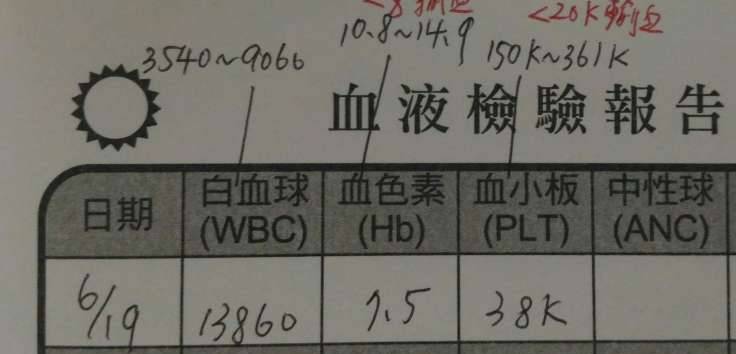 <8輸血 <20K輸血
3540~9060 10.8~14.9 150K~361K
血液檢驗報告
日期 白血球(WBC) 血色素(Hb) 血小板(PLT) 中性球(ANC)
6/19 13860 7.5 38K